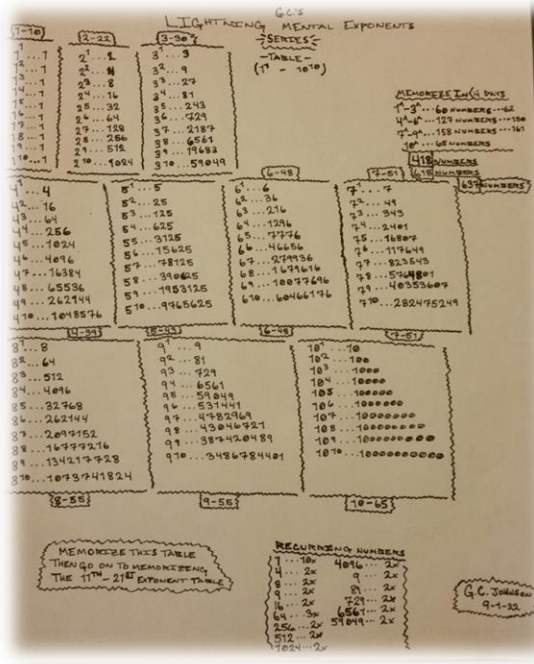 G.C.'S
LIGHTNING MENTAL EXPONENTS
SERIES
-TABLE-
(1¹ - 10¹⁰)
1-10
...1
...1
...1
...1
1⁵...1
1⁶...1
1⁷...1
1⁸...1
1⁹...1
1¹⁰...1
2-22
2¹...2
2²...4
2³...8
2⁴...16
2⁵...32
2⁶...64
2⁷...128
2⁸...256
2⁹...512
2¹⁰...1024
3-30
3¹...3
3²...9
3³...27
3⁴...81
3⁵...243
3⁶...729
3⁷...2187
3⁸...6561
3⁹...19683
3¹⁰...59049
MEMORIZE IN (4 DAYS
1^-3^...60 NUMBERS...62
4^-6^...127 NUMBERS...130
7^-9^...158 NUMBERS...161
10^...65 NUMBERS
418 NUMBERS
618 NUMBERS
637 NUMBERS
4¹...4
4²...16
4³...64
4⁴...256
4⁵...1024
4⁶...4096
4⁷...16384
4⁸...65536
4⁹...262144
4¹⁰...1048576
4-39
5¹...5
5²...25
5³...125
5⁴...625
5⁵...3125
5⁶...15625
5⁷...78125
5⁸...390625
5⁹...1953125
5¹⁰...9765625
5-43
6-48
6¹...6
6²...36
6³...216
6⁴...1296
6⁵...7776
6⁶...46656
6⁷...279936
6⁸...1679616
6⁹...10077696
6¹⁰...60466176
6-48
7-51
7¹...7
7²...49
7³...343
7⁴...2401
7⁵...16807
7⁶...117649
7⁷...823543
7⁸...5764801
7⁹...40353607
7¹⁰...282475249
7-51
8¹...8
8²...64
8³...512
8⁴...4096
8⁵...32768
8⁶...262144
8⁷...2097152
8⁸...16777216
8⁹...134217728
8¹⁰...1073741824
8-55
9¹...9
9²...81
9³...729
9⁴...6561
9⁵...59049
9⁶...531441
9⁷...4782969
9⁸...43046721
9⁹...387420489
9¹⁰...3486784401
9-55
10¹...10
10²...100
10³...1000
10⁴...10000
10⁵...100000
10⁶...1000000
10⁷...10000000
10⁸...100000000
10⁹...1000000000
10¹⁰...10000000000
10-65
MEMORIZE THIS TABLE
THEN GO ON TO MEMORIZING
THE 11TH - 21ST EXPONENT TABLE
RECURRING NUMBERS
1...10x
4...2x
8...2x
9...2x
16...2x
64...3x
256...2x
512...2x
1024...2x
4096...2x
9...2x
81...2x
729...2x
6561...2x
59049...2x
G.C. JOHNSON
9-1-22